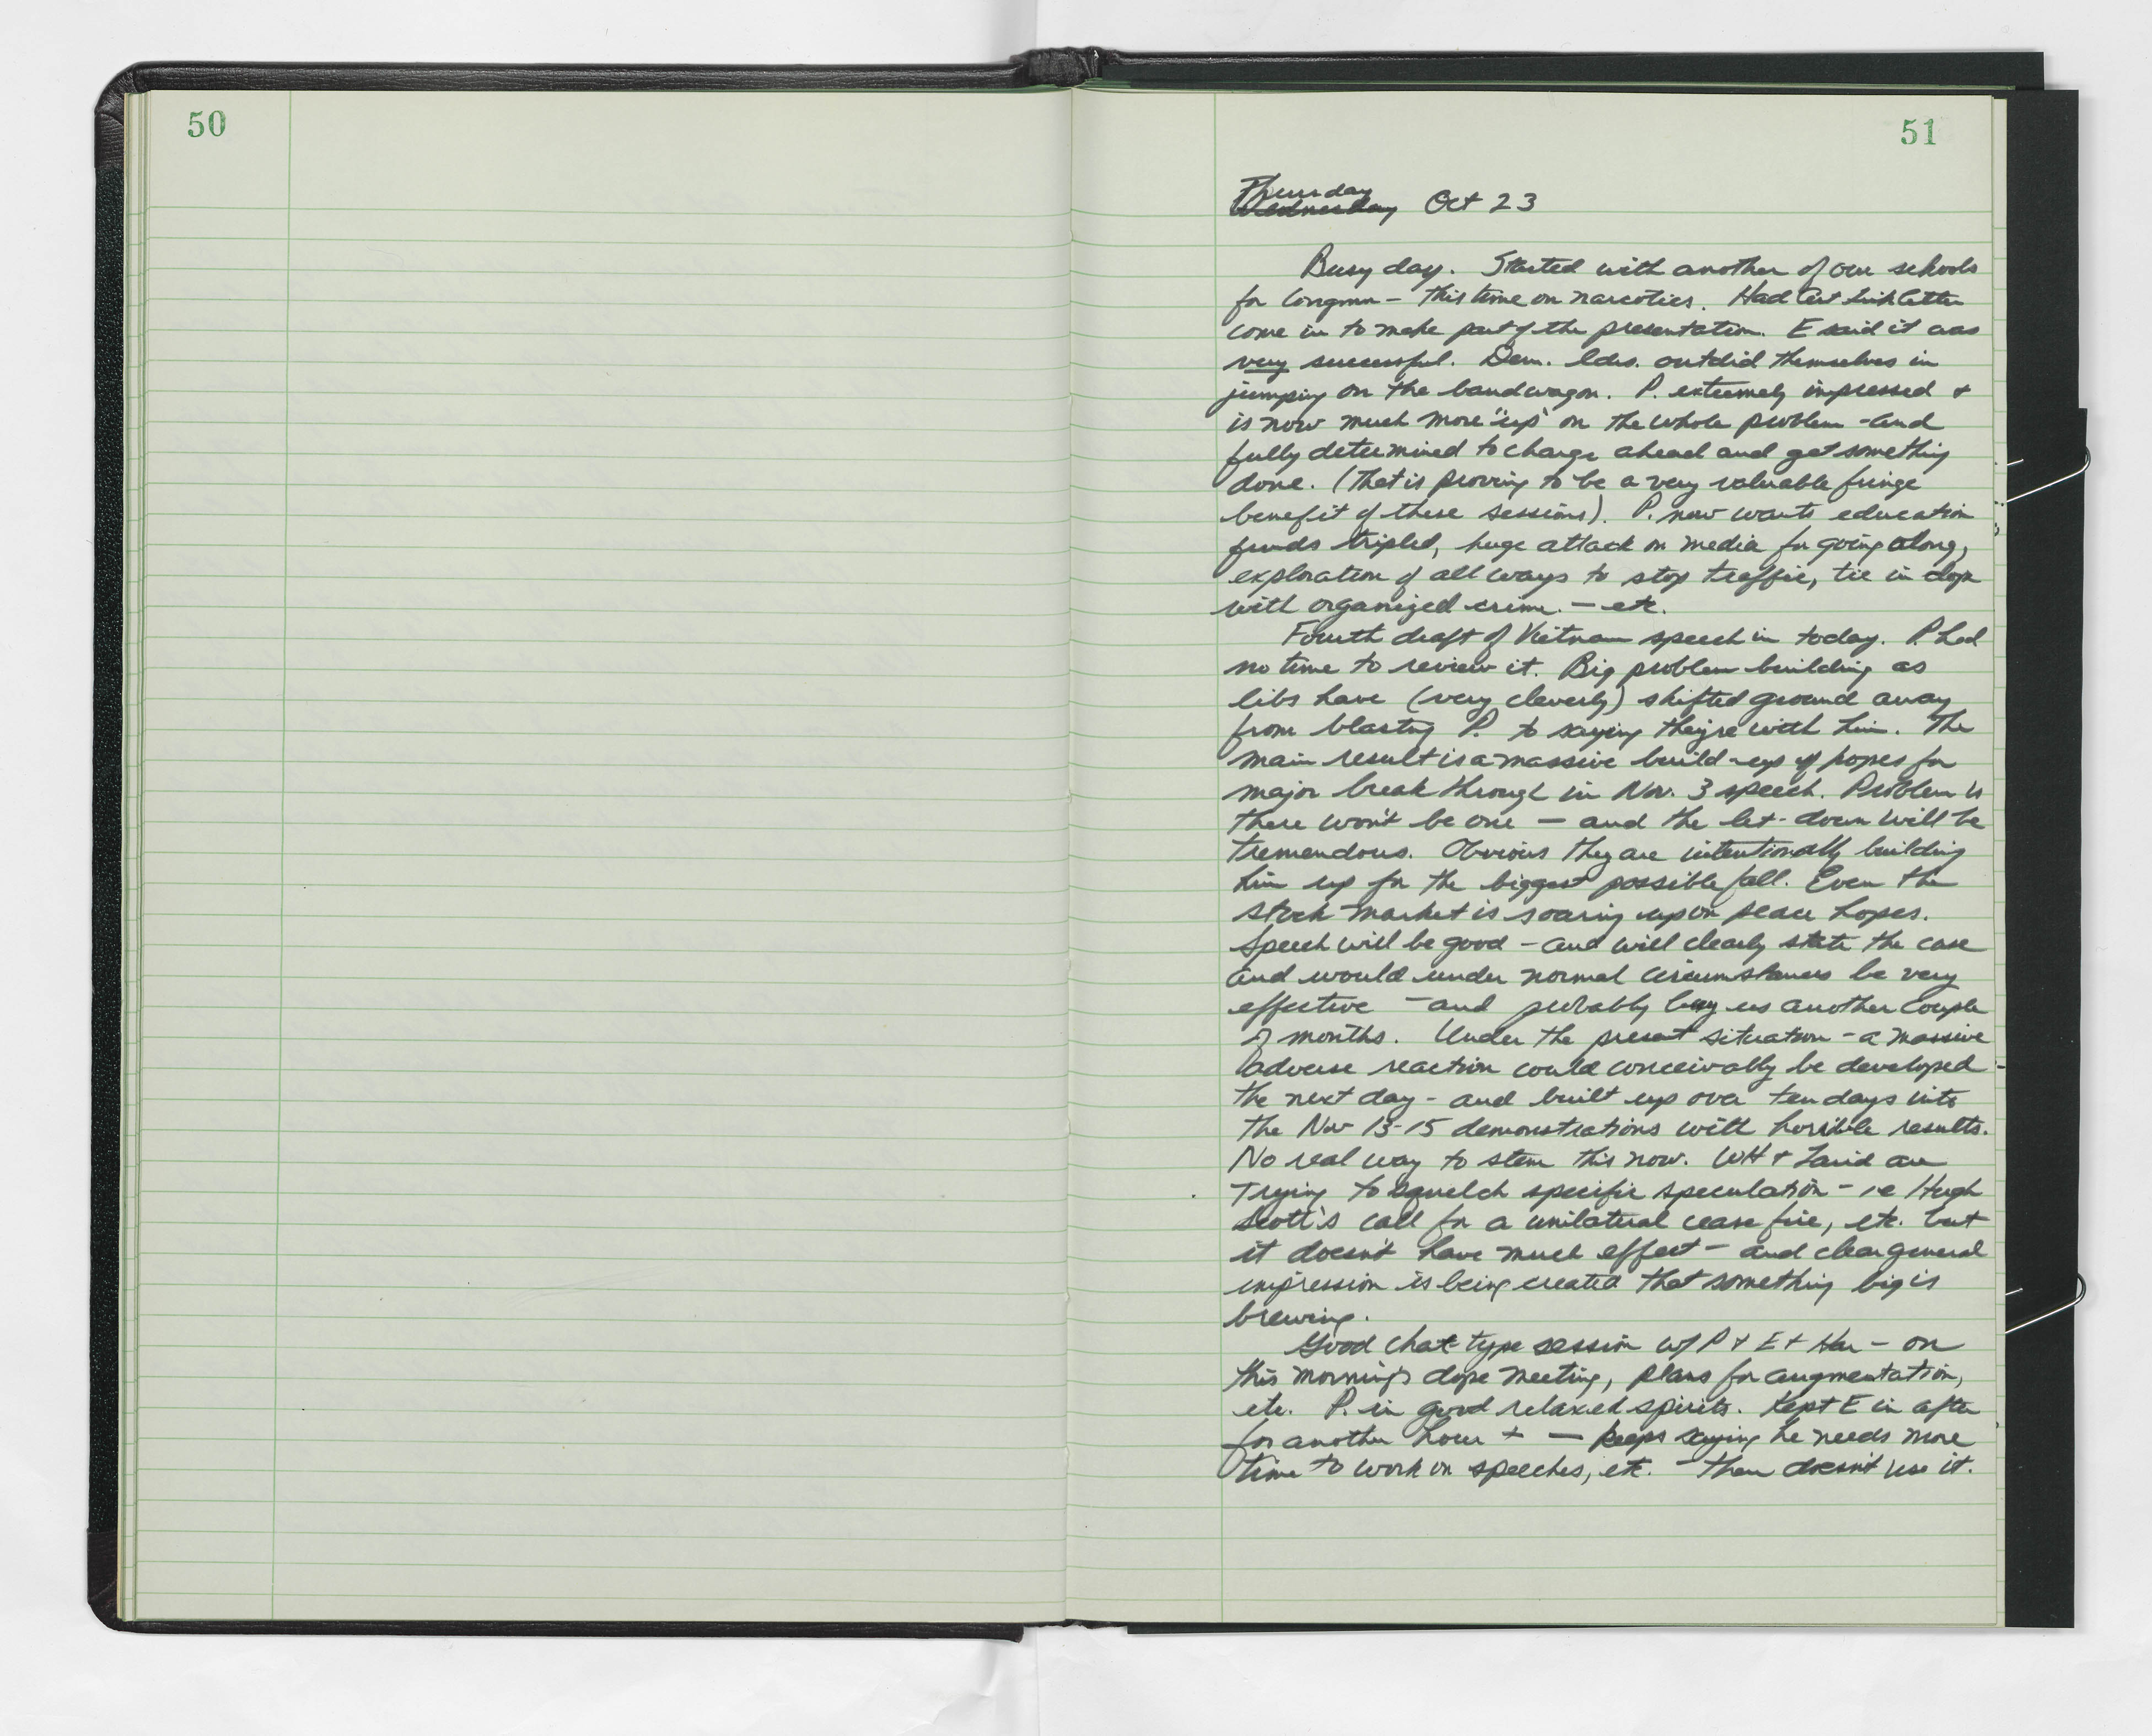 50
51
Thursday
Wednesday Oct 23
Busy day. Started with another of our schools
for Congmn - this time on narcotics. Had Art Linkletter
come in to make part of the presentation. E said it was
very successful. Dem. ldrs. outdid themselves in
jumping on the bandwagon. P. extremely impressed +
is now much more "up" on the whole problem - and
fully determined to charge ahead and get something
done. (That is proving to be a very valuable fringe
benefit of these sessions). P. now wants education
funds tripled, huge attack on media for going along,
exploration of all ways to stop traffic, tie in dope
with organized crime. - etc.
Fourth draft of Vietnam speech in today. P. had
no time to review it. Big problem building as
libs have (very cleverly) shifted ground away
from blasting P. to saying they're with him. The
main result is a massive build-up of hopes for
major break through in Nov. 3 speech. Problem is
there won't be one - and the let-down will be
tremendous. Obvious they are intentionally building
him up for the biggest possible fall. Even the
stock market is soaring up on peace hopes.
Speech will be good - and will clearly state the case
and would under normal circumstances be very
effective - and probably buy us another couple
of months. Under the present situation - a massive
adverse reaction could conceivably be developed
the next day - and built up over ten days into
the Nov 13-15 demonstrations with horrible results.
No real way to stem this now. WH + Laird are
trying to squelch specific speculation - ie Hugh
Scott's call for a unilateral cease fire, etc. but
it doesn't have much effect - and clear general
impression is being created that something big is
brewing.
Good chat-type session w/ P + E + Har - on
this morning's dope meeting, plans for augmentation,
etc. P. in good relaxed spirits. Kept E in after
for another hour + - keeps saying he needs more
time to work on speeches, etc. - then doesn't use it.